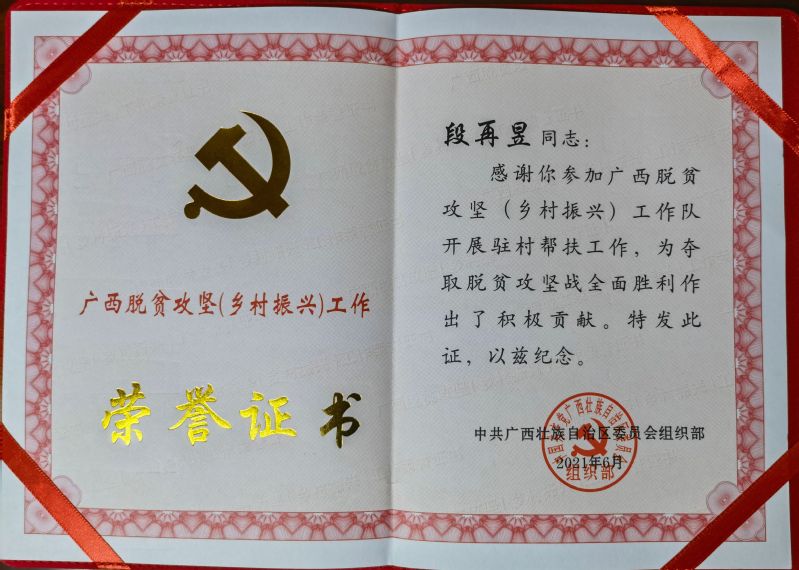 广西脱贫攻坚(乡村振兴)工作
荣誉证书
段再昱同志：
感谢你参加广西脱贫
攻坚（乡村振兴）工作队
开展驻村帮扶工作，为夺
取脱贫攻坚战全面胜利作
出了积极贡献。特发此
证，以兹纪念。
中共广西壮族自治区委员会组织部
2021年6月
中国共产党广西壮族自治区委员会
组织部